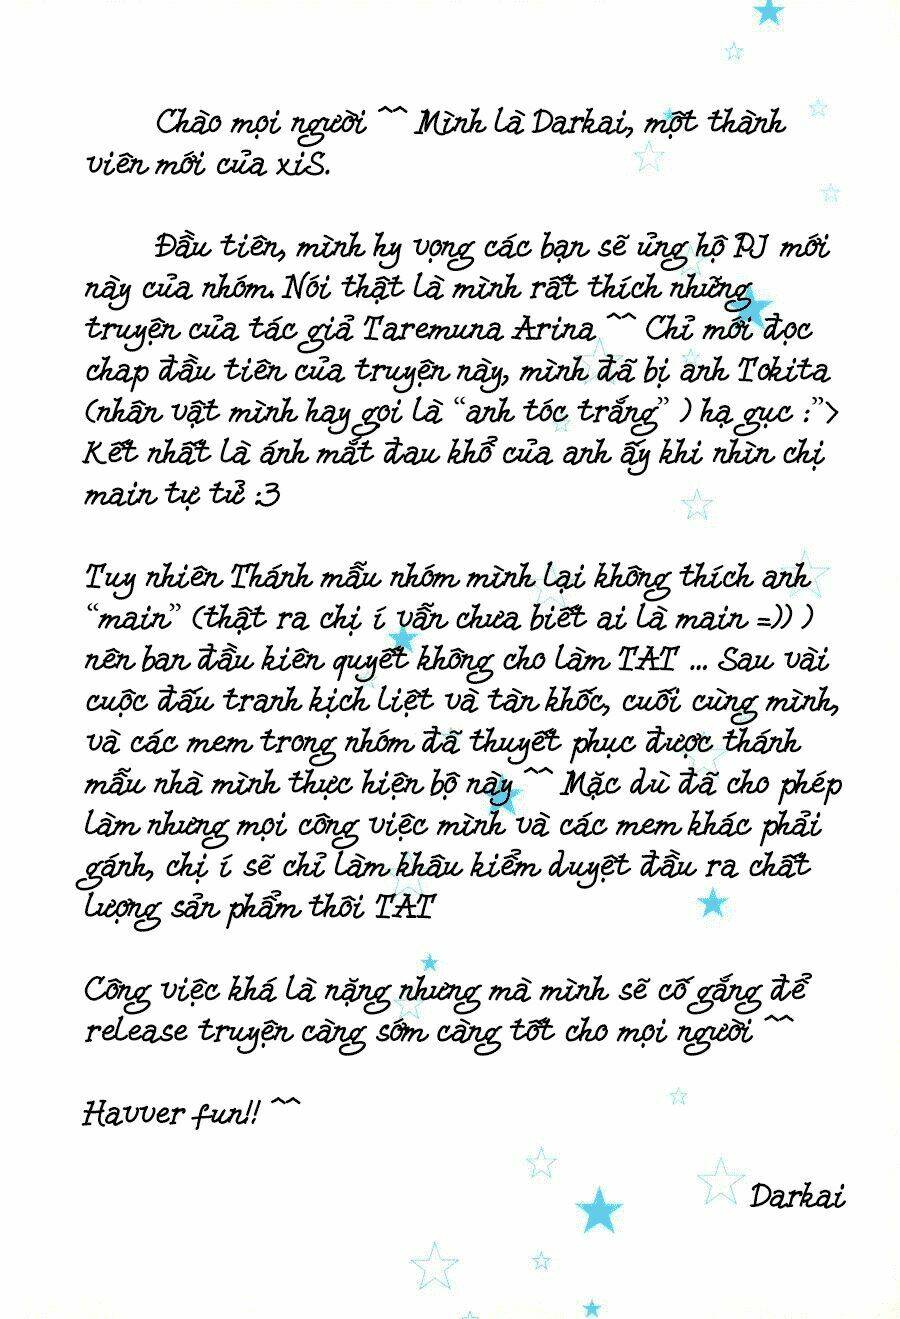 Chào mọi người ^^ Mình là Darkai, một thành
viên mới của xiS.
Đầu tiên, mình hy vọng các bạn sẽ ủng hộ PJ mới
này của nhóm. Nói thật là mình rất thích những
truyện của tác giả Taremuna Arina ^^ Chỉ mới đọc
chap đầu tiên của truyện này, mình đã bị anh Tokita
(nhân vật mình hay gọi là “anh tóc trắng” ) hạ gục :”>
Kết nhất là ánh mắt đau khổ của anh ấy khi nhìn chị
main tự tử :3
Tuy nhiên Thánh mẫu nhóm mình lại không thích anh
“main” (thật ra chị í vẫn chưa biết ai là main =)) )
nên ban đầu kiên quyết không cho làm TAT ... Sau vài
cuộc đấu tranh kịch liệt và tàn khốc, cuối cùng mình,
và các mem trong nhóm đã thuyết phục được thánh
mẫu nhà mình thực hiện bộ này ^^ Mặc dù đã cho phép
làm nhưng mọi công việc mình và các mem khác phải
gánh, chị í sẽ chỉ làm khâu kiểm duyệt đầu ra chất
lượng sản phẩm thôi TAT
Công việc khá là nặng nhưng mà mình sẽ cố gắng để
release truyện càng sớm càng tốt cho mọi người ^^
Havver fun!! ^^
Darkai